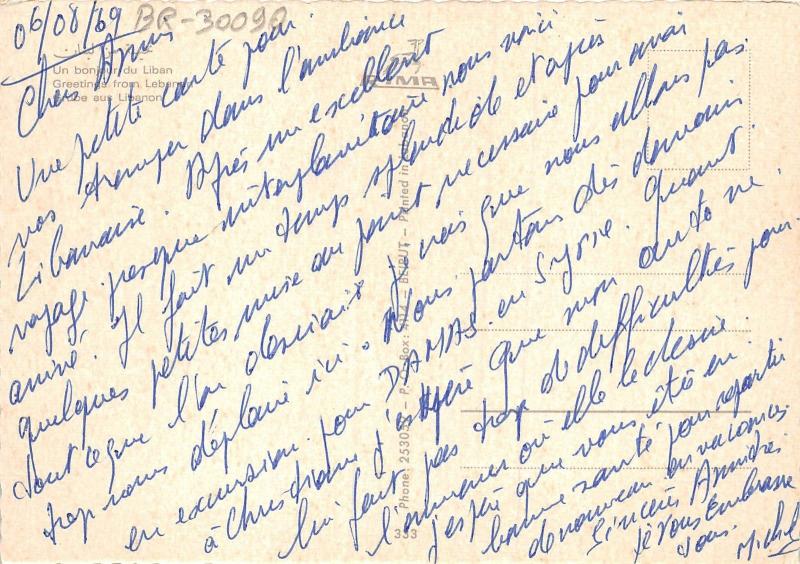 06/08/69
BR-3009
Un bonjour du Liban
Greetings from Lebanon
Grüße aus Libanon
Chers Amis
Une petite carte pour
vous tremper dans l'ambiance
Libanaise. Après un excellent
voyage presque interplanétaire nous voici
arrivé. Il fait un temps splendide et après
quelques petites mise au point nécessaire pour avoir
tout ce que l'on désirait je crois que nous allons pas
trop nous déplaire ici. Nous partons dès demain
en excursion pour DAMAS en Syrie. Quant
à Christiane j'espère que mon auto ne
lui fait pas trop de difficultés pour
l'emmener où elle le désire.
j'espère que vous êtes en
bonne santé pour repartir
de nouveau en vacances.
Sincères Amitiés
je vous embrasse
tous. Michel
Phone: 2530 - P. O. Box: - BEIRUT - Printed in
333